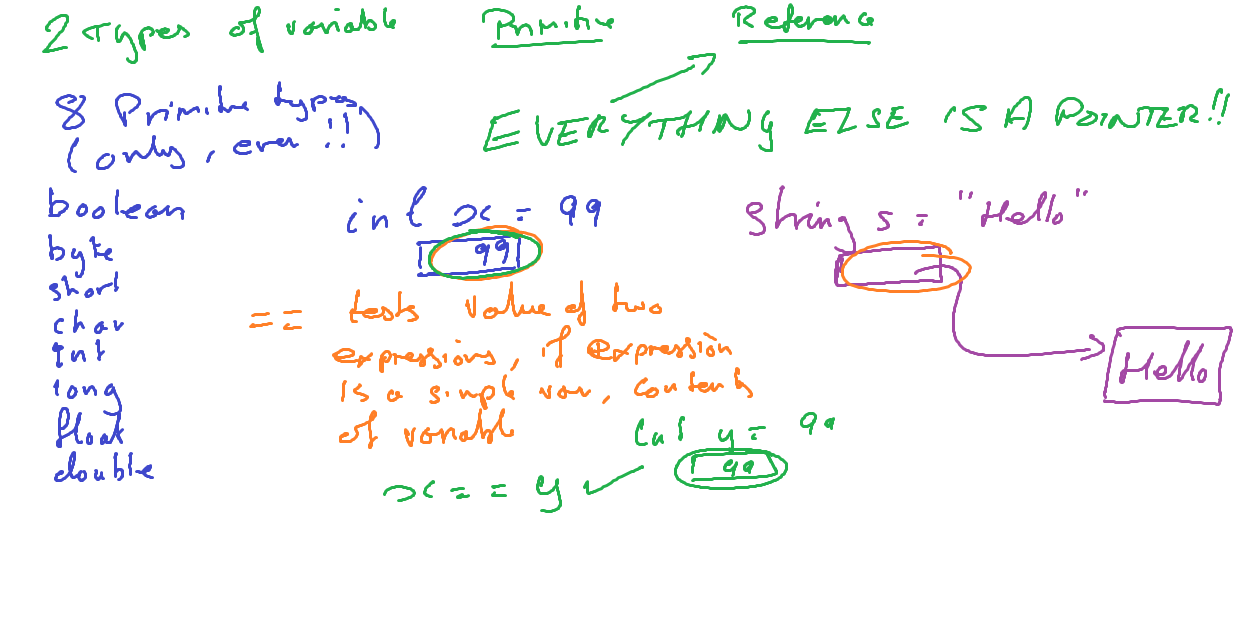 2 Types of variable Primitive Reference
8 Primitive types
(only, ever !!)
EVERYTHING ELSE IS A POINTER!!
boolean
byte
short
char
int
long
float
double
int x = 99
99
String s = "Hello"
Hello
== tests value of two
expressions, if expression
is a simple var, contents
of variable
int y = 99
99
x == y ✓